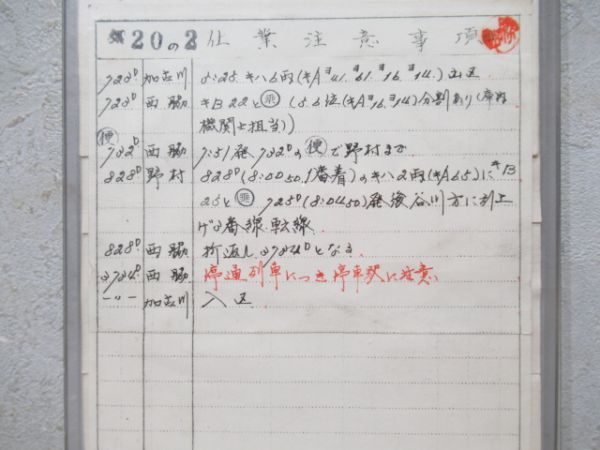 第20の2 仕業注意事項
723D 加古川 5:25 キハ6両(キA41. 61. 16. 14.)出区
723D 西脇 キB22と乗(5.6位(キA16. 14)分割あり(席内
機関士担当))
便732D 西脇 7:51発 732Dの便で野村まで
828D 野村 828D(8:00 50. 1番着)のキハ2両(キA65)にキB
25と乗 725D(8:04 50)発後谷川方に引上
げ2番線転線
828D 西脇 折返し2724Dとなる
2724D 西脇 停通列車につき停車駅に注意
〃 加古川 入区